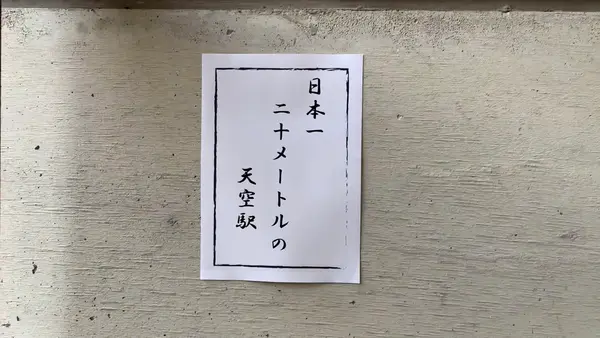 日本一
二十メートルの
天空駅